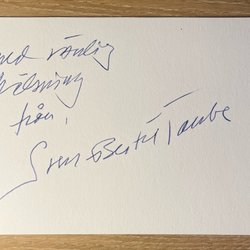 med vänlig
hälsning
från,
Sven-Bertil Taube